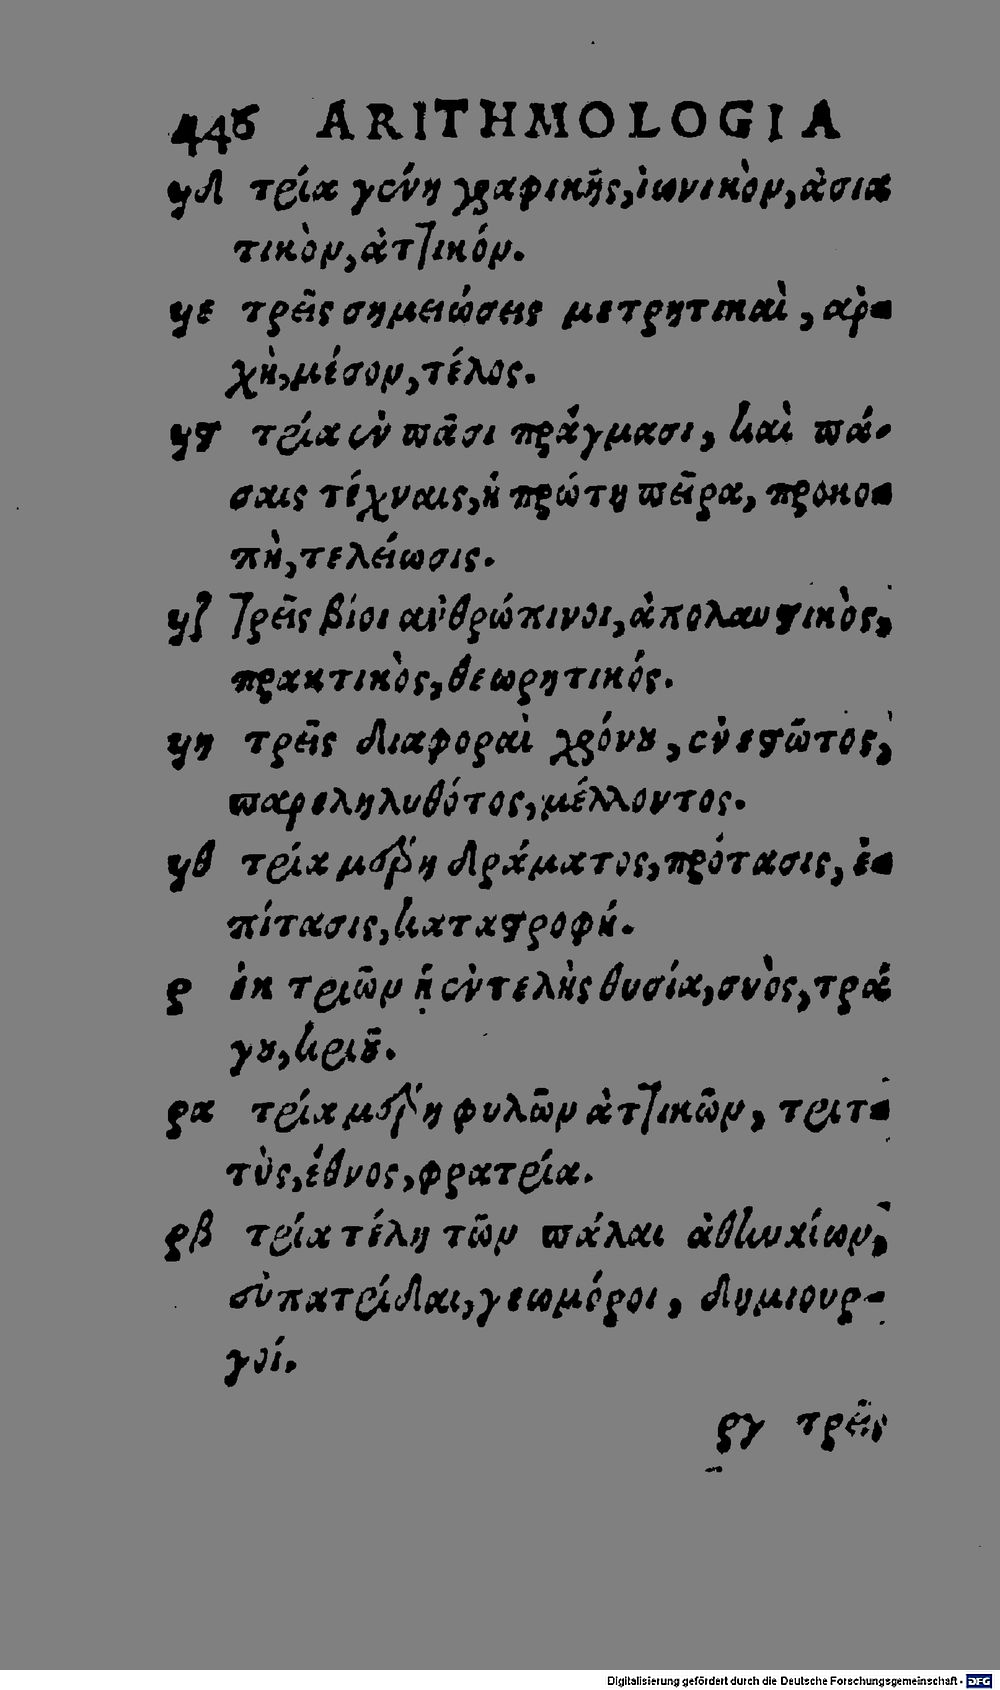 446 ARITHMOLOGIA
ϟδ τρία γένη γραφικῆς, ἰωνικὸν, ἀσια
τικὸν, ἀττικόν.
ϟε τρεῖς σημειώσεις μετρητικαὶ, αρ-
χὴ, μέσον, τέλος.
ϟϛ τρία ἐν πᾶσι πράγμασι, καὶ πά-
σαις τέχναις, ἡ πρώτη πεῖρα, προκο-
πὴ, τελείωσις.
ϟζ τρεῖς βίοι ανθρώπινοι, ἀπολαυστικὸς,
πρακτικὸς, θεωρητικός.
ϟη τρεῖς διαφοραὶ χρόνου, ἐνεστῶτος,
παρεληλυθότος, μέλλοντος.
ϟθ τρία μέρη δράματος, πρότασις, ἐ-
πίτασις, καταστροφή.
ρ ἐκ τριῶν ἡ ἐντελὴς θυσία, συὸς, τρά
γου, κριοῦ.
ρα τρία μέρη φυλῶν ἀττικῶν, τριτ-
τὺς, ἔθνος, φρατρία.
ρβ τρία τέλη τῶν πάλαι ἀθηναίων,
εὐπατρίδαι, γεωμόροι, δημιουρ-
γοί.
ργ τρεῖς
Digitalisierung gefördert durch die Deutsche Forschungsgemeinschaft - DFG